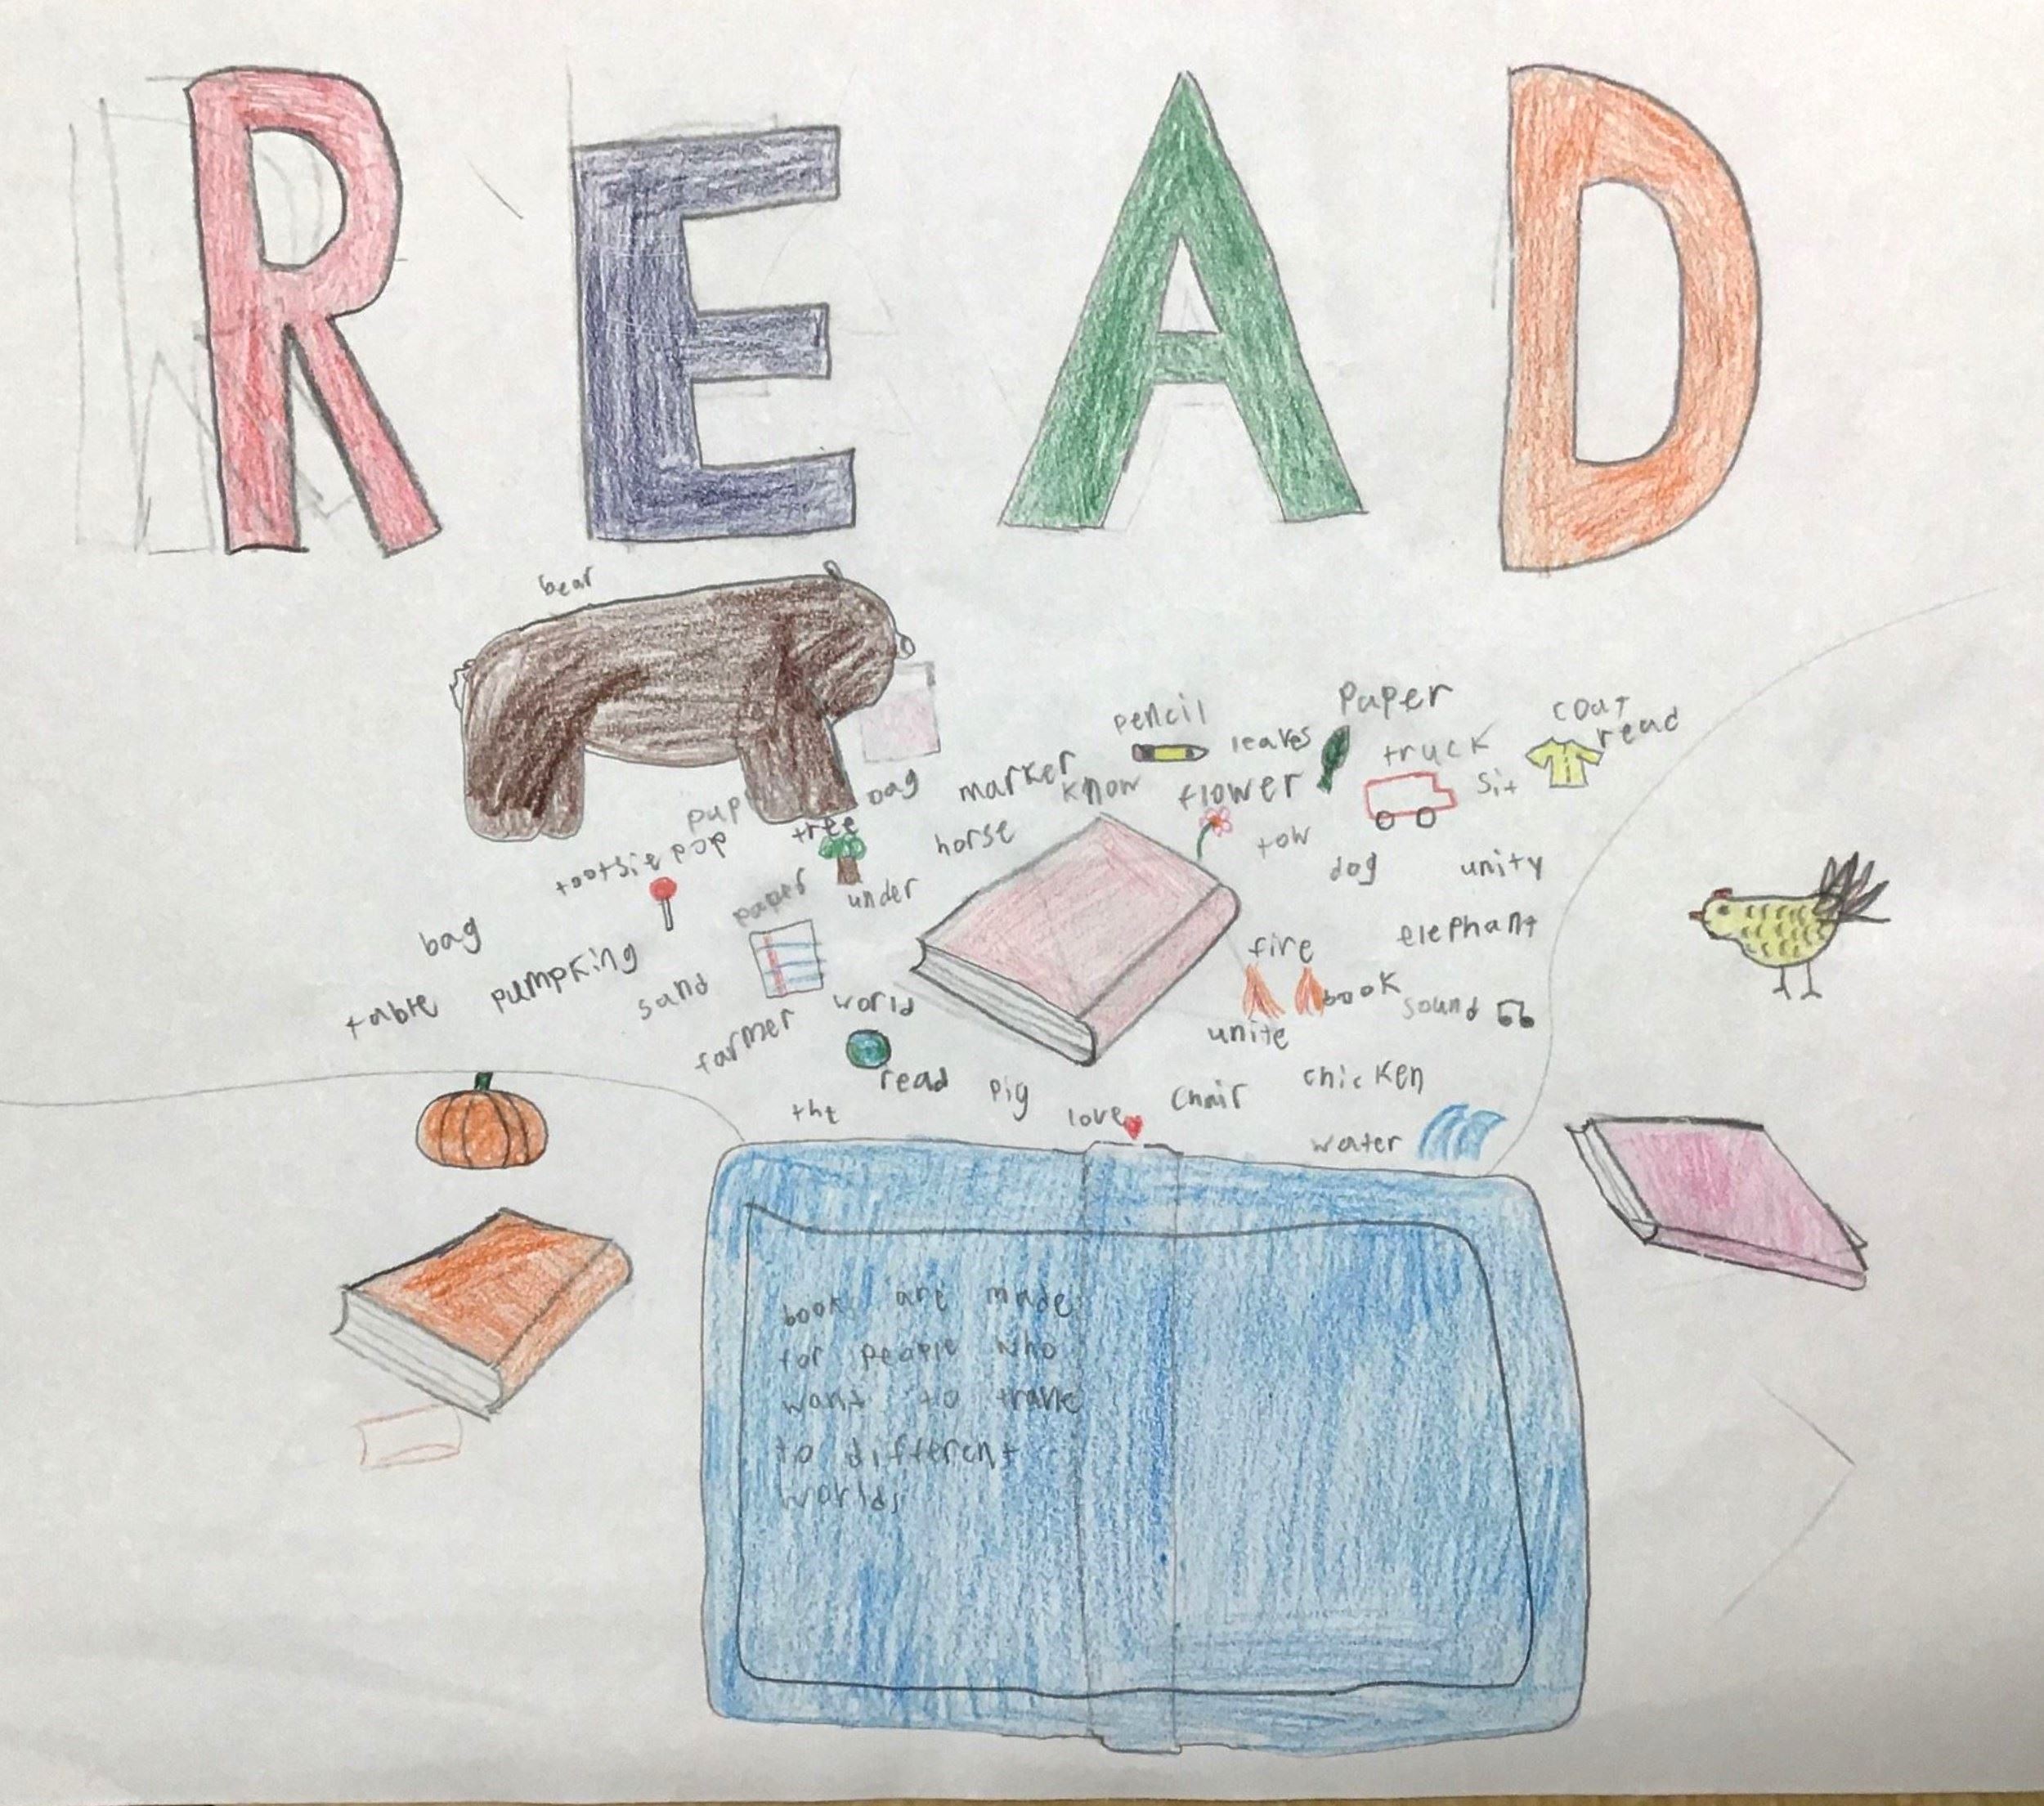 READ
bear
pencil
leaves
paper
coat
read
truck
sit
marker
know
flower
bag
pup
tree
tootsie pop
horse
tow
dog
unity
paper
under
bag
pumpking
table
sand
farmer
world
read
fire
elephant
book
sound
unite
the
pig
love
chair
chicken
water
book are made
for people who
want to travle
to different
worlds